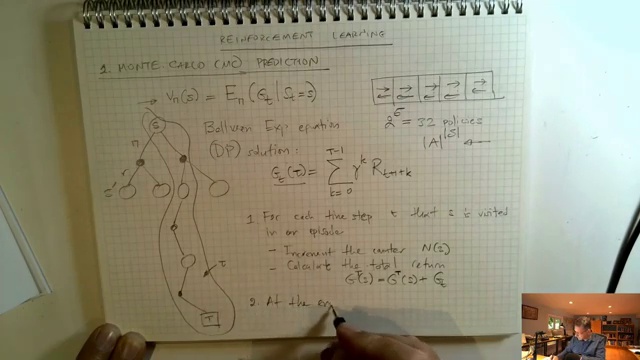 REINFORCEMENT LEARNING
1. MONTE CARLO (MC) PREDICTION
→ Vπ(s) = Eπ(Gt | St = s)
2^5 = 32 policies
|A|^|S| ←
Bellman Exp equation
(DP) solution:
Gt(τ) = Σ_{k=0}^{T-1} γ^k Rt+1+k
S
π
r
s'
τ
T
1 For each time step t that s is visited
in an episode
- Increment the counter N(s)
- Calculate the total return
G^T(s) = G^T(s) + Gt
2. At the en